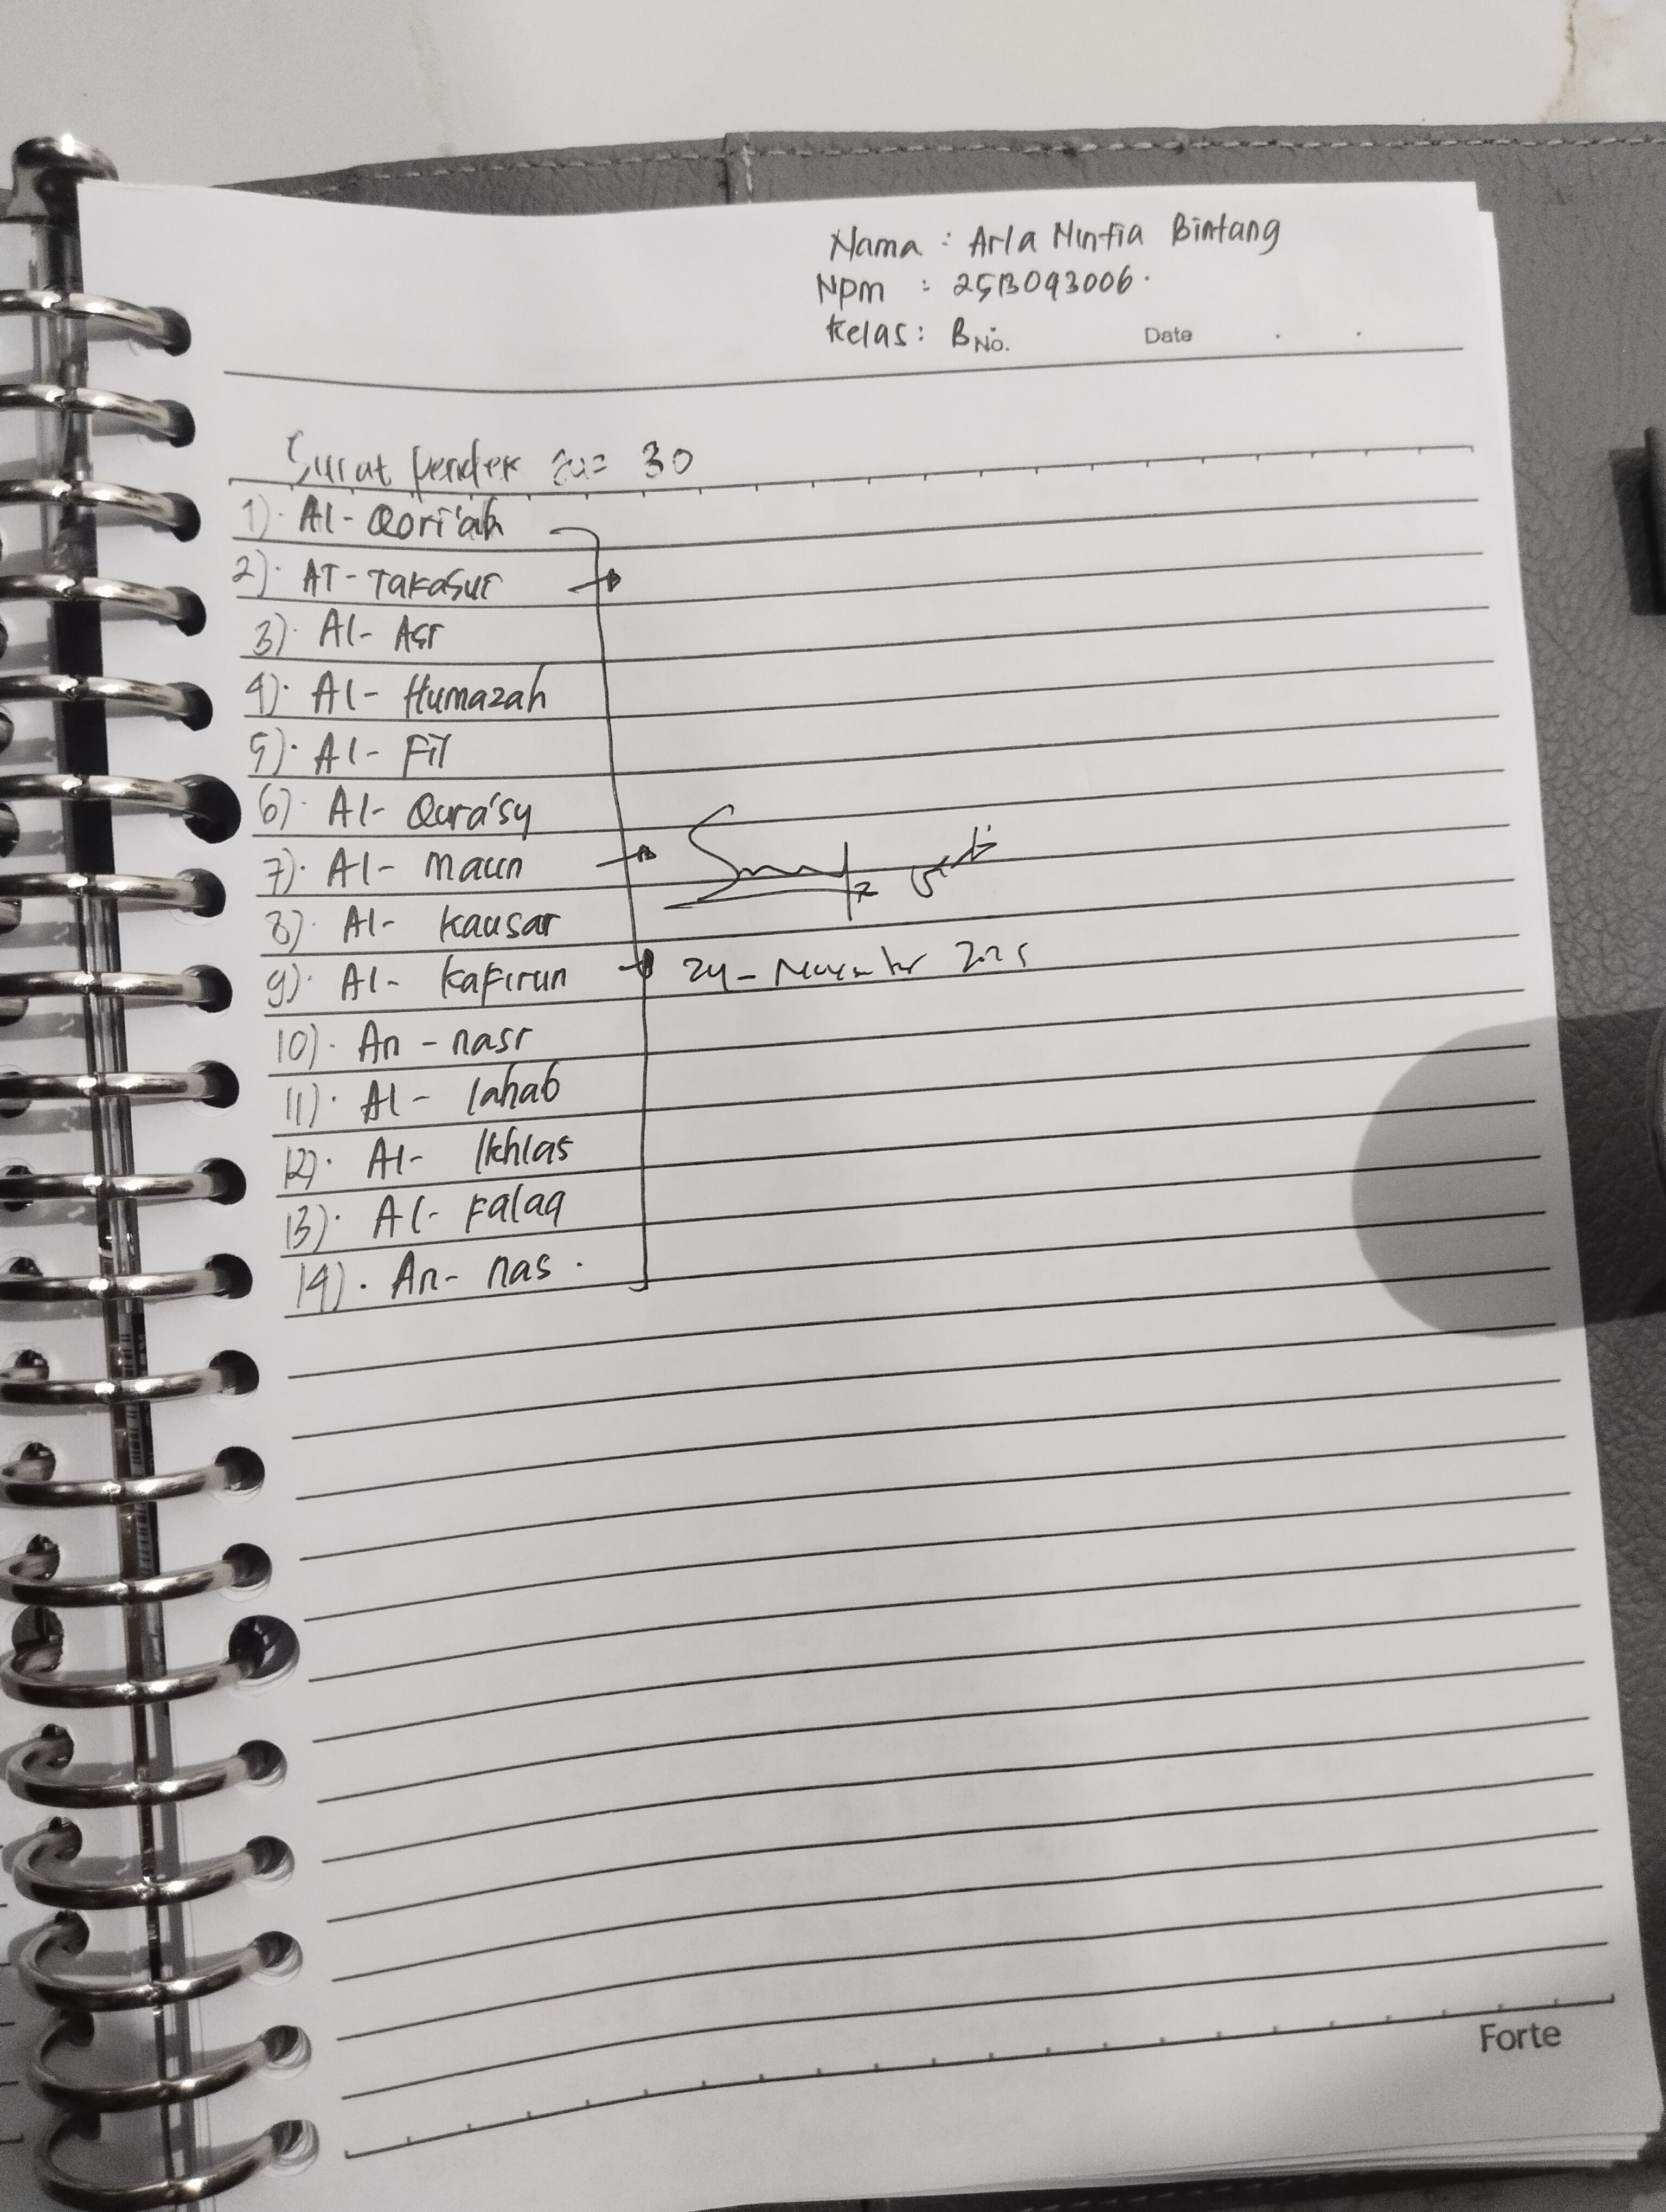 Nama : Arla Nintia Bintang
Npm : 25B093006.
Kelas : B
No. Date . .
Surat Pendek 30
1). Al - Qori'ah
2). AT - Takasur
3). Al - Asr
4). Al - Humazah
5). Al - Fil
6). Al - Qura'sy
7). Al - Maun
8). Al - Kausar
9). Al - Kafirun
24 - November 2025
10). An - nasr
11). Al - lahab
12). Al - Ikhlas
13). Al - Falaq
14). An - nas .
Forte